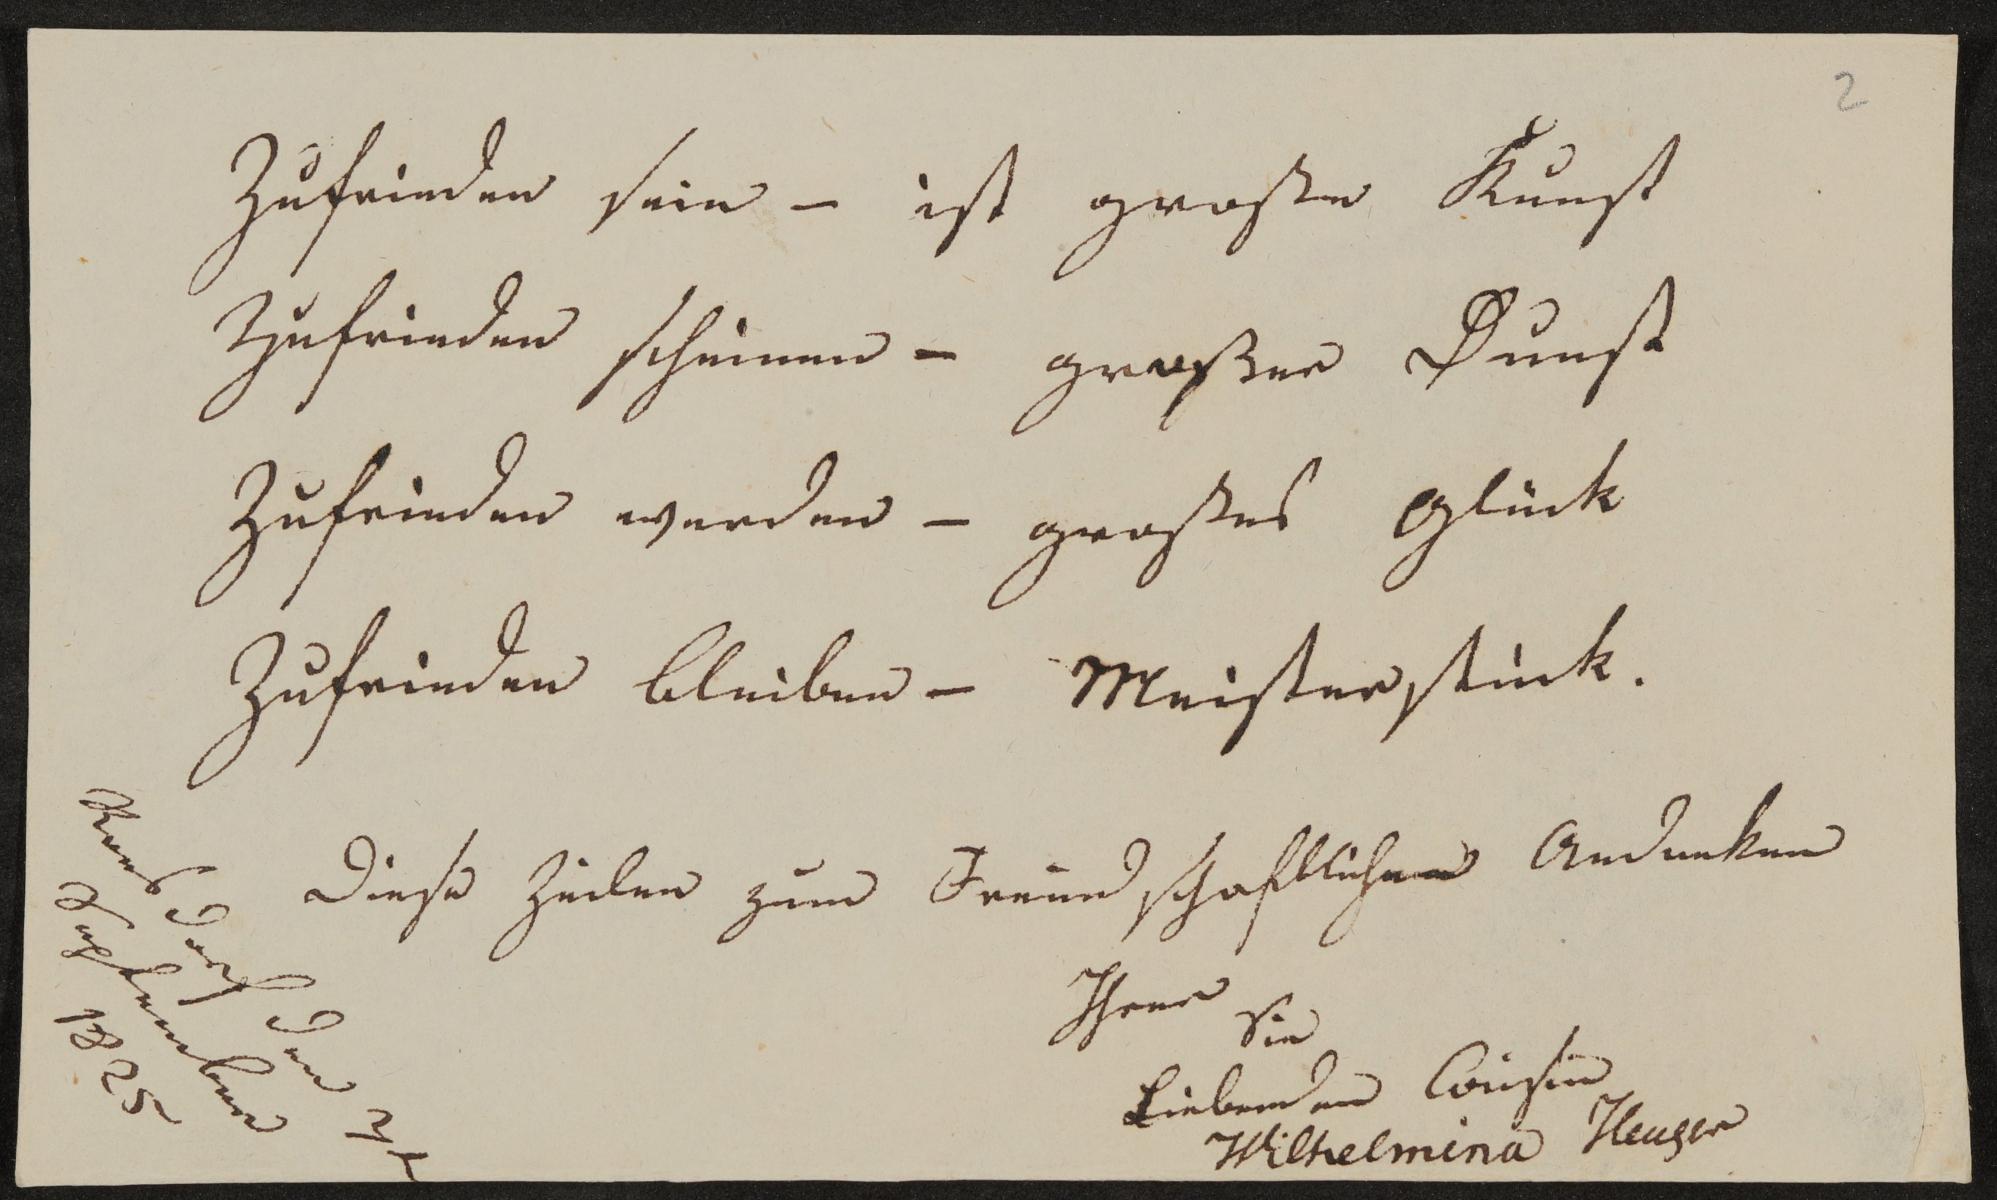 2
Zufrieden sein – ist große Kunst
Zufrieden scheinen – großer Dunst
Zufrieden werden – großes Glück
Zufrieden bleiben – Meisterstück.
Diese Zeilen zum Freundschaftlichen Andenken
Ihrer
Sie
Liebenden Cousin
Wilhelmina
den
September
1825